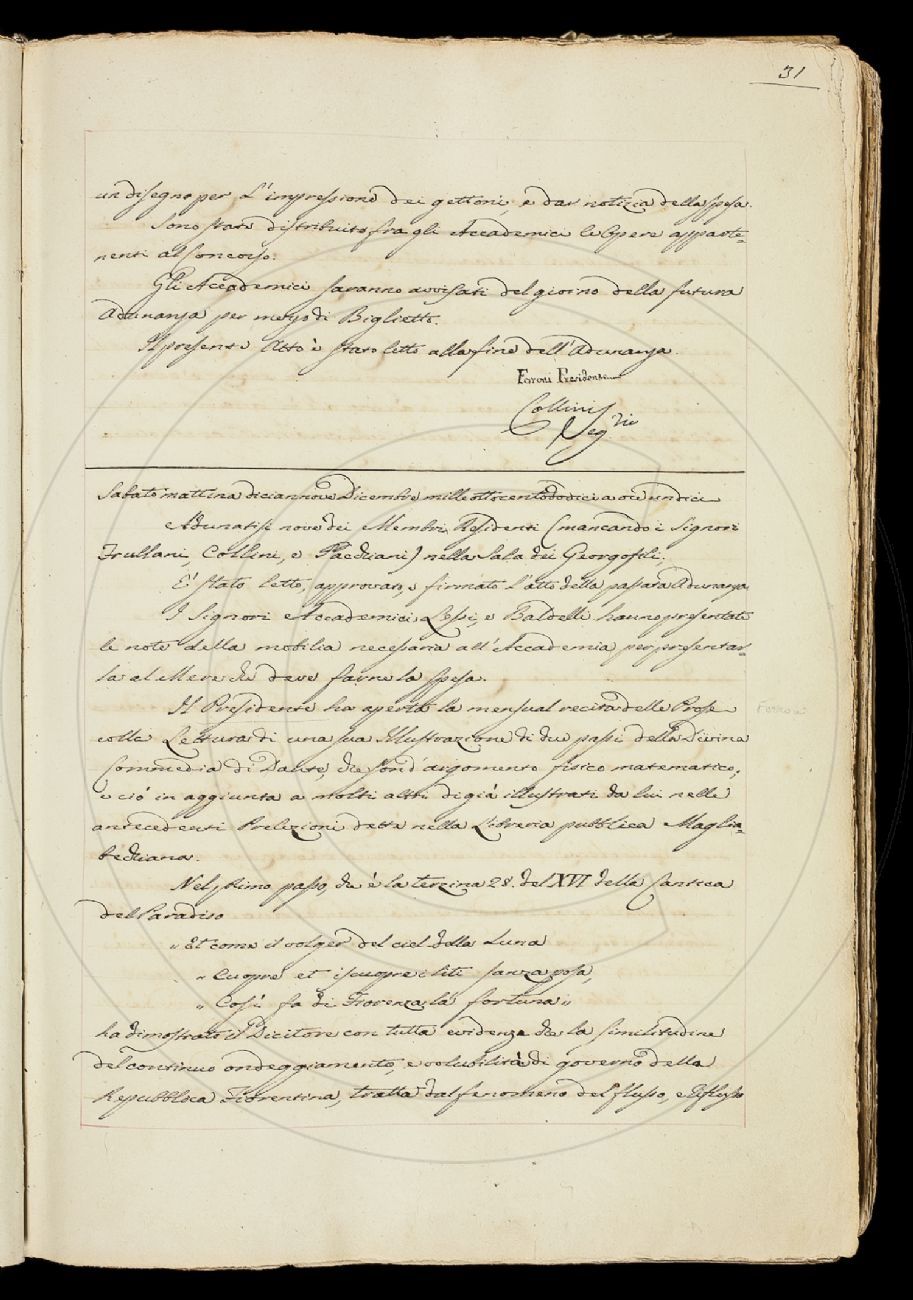 31
un disegno per l'impressione dei gettoni, e dar notizia della spesa.
Sono state distribuite fra gli Accademici le Opere apparte=
nenti al Concorso.
Gli Accademici saranno avvisati del giorno della futura
Adunanza per mezzo di Biglietto.
Il presente Atto è stato letto alla fine dell'Adunanza.
Ferroni Presidente
Collini
Seg.rio
Sabato mattina diciannove Dicembre milleottocentododici a ore undici
Adunatisi nove dei Membri Residenti (mancando i Signori
Frullani, Collini, e Pacchiani) nella Sala dei Georgofili;
E' stato letto, approvato, e firmato l'atto della passata Adunanza
I Signori Accademici Lessi, e Baldelli hanno presentate
le note della mobilia necessaria all'Accademia per presentar=
la al Mere che deve farne la spesa.
Il Presidente ha aperta la mensual recita delle Prose
Ferroni
colla Lettura di una sua Illustrazione di due passi della Divina
Commedia di Dante, che son d'argomento fisico matematico;
e ciò in aggiunta a molti altri di già illustrati da lui nelle
antecedenti Prelezioni dette nella Libreria pubblica Maglia=
bechiana.
Nel primo passo, che è la terzina 28. del XVI della Cantica
del Paradiso
„ Et come il volger del ciel della Luna
„ Cuopre et iscuopre i liti sanza posa,
„ Così fa di Fiorenza la fortuna „
ha dimostrato il Dicitore con tutta evidenza che la similitudine
del continuo ondeggiamento, e volubilità di governo della
Repubblica Fiorentina, tratta dal fenomeno del flusso, e reflusso